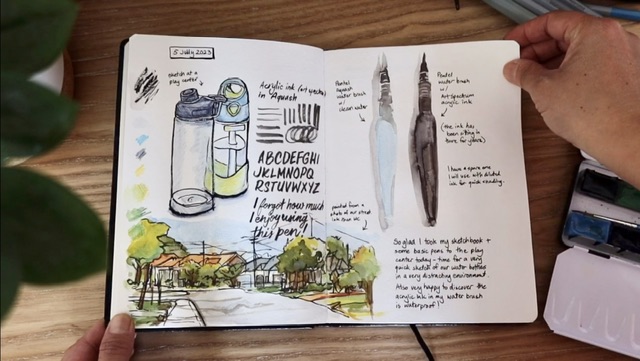 5 July 2023
sketch at a
play center
Acrylic ink (art spectrum)
in Aquash
ABCDEFGHIJ
JKLMNOPQ
RSTUVWXYZ
I forgot how much
I enjoy using
this pen!
Pentel
Aquash
water brush
w/
clean water
painted from a
photo of our street
Pentel
water brush
w/
Art Spectrum
acrylic ink
(the ink has
been sitting in
there for years)
I have a spare one
I will use with diluted
ink for quick shading.
So glad I took my sketchbook +
some basic pens to the play
center today - time for a very
quick sketch of our water bottles
in a very distracting environment.
Also very happy to discover the
acrylic ink in my water brush
is waterproof!